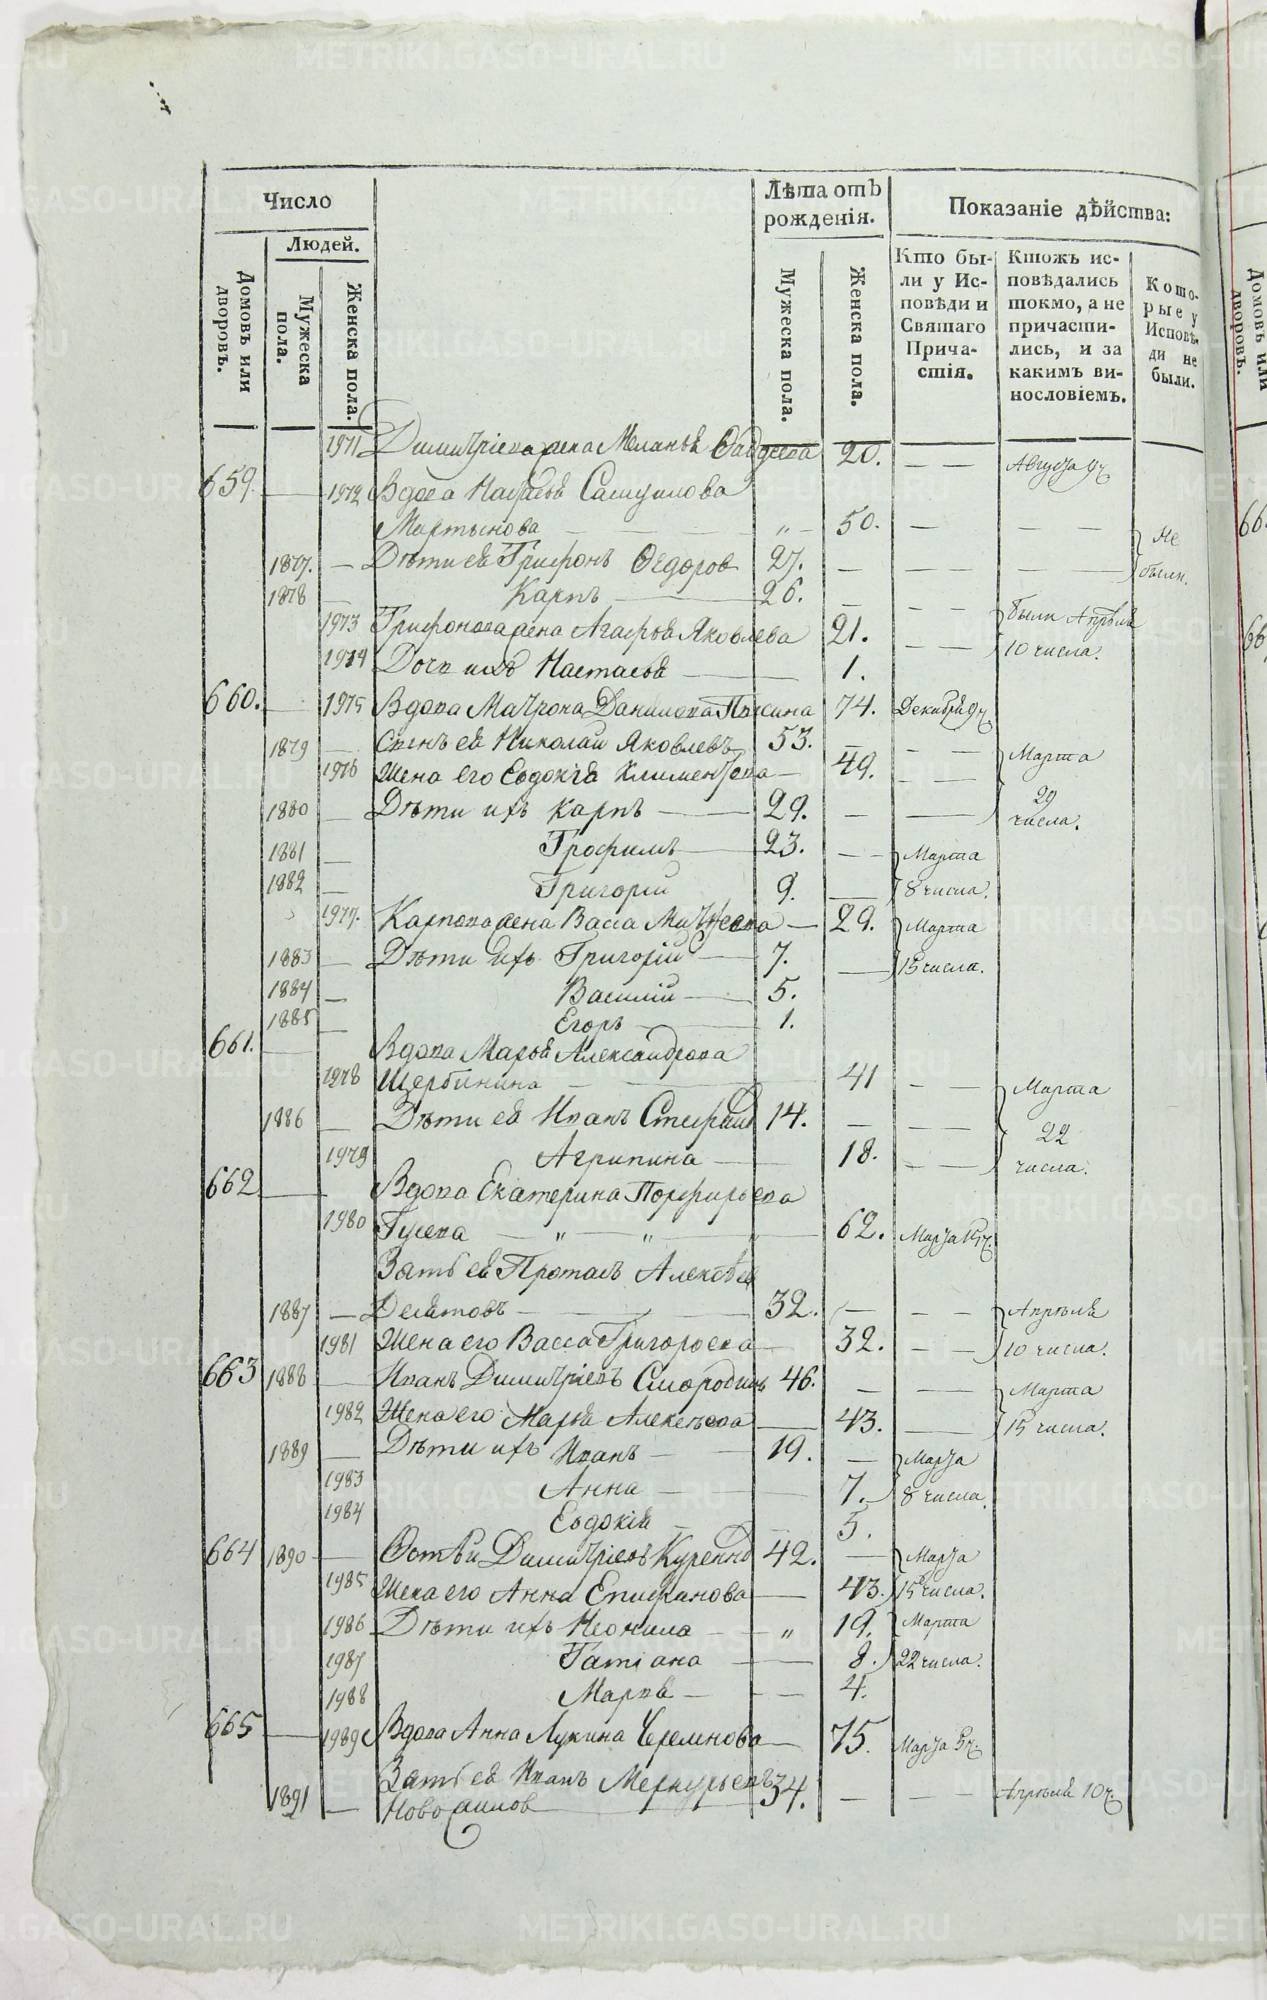 Число
Лѣта отъ рожденія.
Показаніе дѣйства:
Людей.
Домовъ или дворовъ.
Мужеска пола.
Женска пола.
Мужеска пола.
Женска пола.
Кто были у Исповѣди и Святаго Причастія.
Ктожъ исповѣдались токмо, а не причастились, и за какимъ винословіемъ.
Которые у Исповѣди не были.
1971 Димитріева жена Меланья Фадѣева 20. Августа 9 ч.
659. 1972 Вдова Настасья Самуилова
Мартынова „ 50. Не
1877. Дѣти ея Трифонъ Ѳедоров 27. были.
1878 Карпъ 26.
1973 Трифонова жена Агафья Яковлева 21. были Апрѣля
1974 Дочь ихъ Настасья 1. 10 числа.
660. 1975 Вдова Матрона Данилова 74. Декабря 9 ч.
1879 Сынъ ея Николай Яковлевъ 53. Марта
1976 Жена его Евдокія Климентова 49. 29
1880 Дѣти ихъ Карпъ 29. числа.
1881 Трофимъ 23. Марта
1882 Григорій 9. 8 числа.
1977. Карпова жена Васса Матѵеева 29. Марта
1883 Дѣти ихъ Григорій 7. 15 числа.
1884 Василій 5.
1885 Егоръ 1.
661. Вдова Марья Александрова
1978 Щербинина 41 Марта
1886 Дѣти ея Иванъ Стефан 14. 22
1979 Агрипина 18. числа.
662 Вдова Екатерина Порфирьева
1980 Гусева „ „ „ 62. Марта 15 ч.
Зять ея Протасъ Алексѣев
1887 Десятовъ 32. Апрѣля
1981 Жена его Васса Григорьева 32. 10 числа.
663 1888 Иванъ Димитріевъ Смородинъ 46. Марта
1982 Жена его Марья Алексѣева 43. 15 числа.
1889 Дѣти ихъ Иванъ 19. Марта
1983 Анна 7. 8 числа.
1984 Евдокія 5.
664 1890 Димитріевъ 42. Марта
1985 Жена его Анна Епифанова 43. 15 числа.
1986 Дѣти ихъ Неонила „ 19. Марта
1987 Татіана 8. 22 числа.
1988 Марѳа 4.
665 1989 Вдова Анна Лукина Черемнова 75. Марта 5 ч.
Зять ея Иванъ Меркурьевъ
1891 34. Апрѣля 10 ч.
METRIKI.GASO-URAL.RU